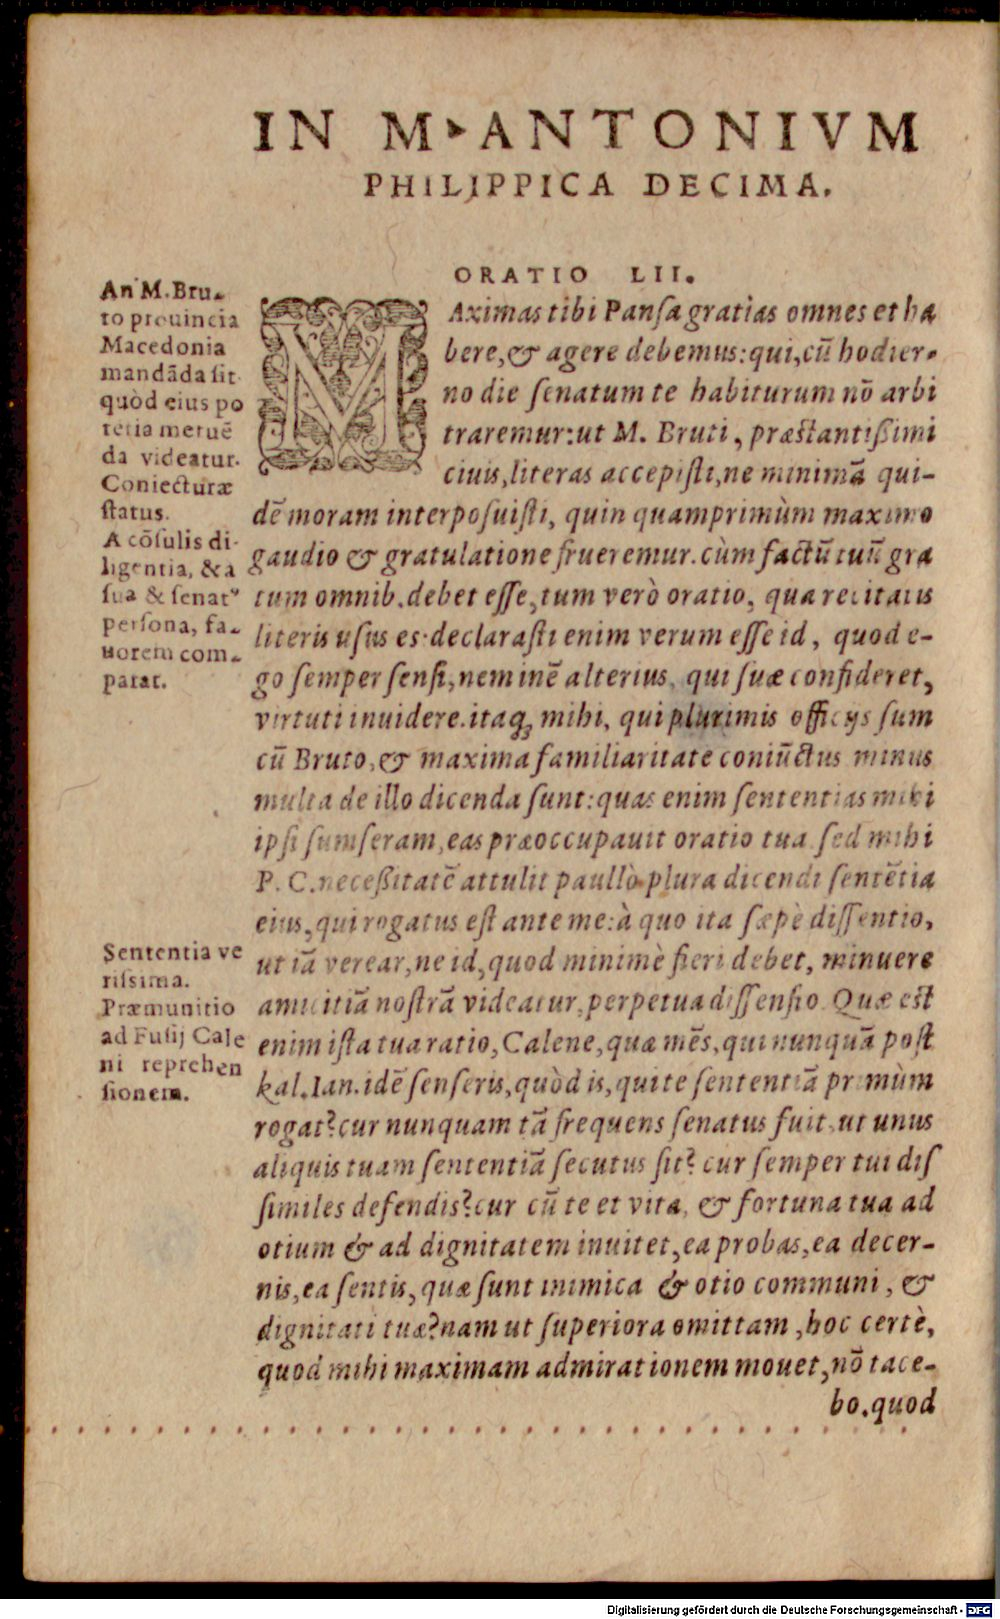 IN M. ANTONIVM
PHILIPPICA DECIMA.
ORATIO LII.
An M. Bru-
to prouincia
Macedonia
mandāda sit
quòd eius po
tētia metuē
da videatur.
Coniecturæ
status.
A cōsulis di-
ligentia, & à
sua & senatꝰ
persona, fa-
uorem com-
parat.
MAximas tibi Pansa gratias omnes et ha
bere, & agere debemus: qui, cū hodier-
no die senatum te habiturum nō arbi
traremur: ut M. Bruti, præstantißimi
ciuis, literas accepisti, ne minimā qui-
dē moram interposuisti, quin quamprimùm maximo
gaudio & gratulatione frueremur. cùm factū tuū gra
tum omnib. debet esse, tum verò oratio, qua recitatis
literis usus es. declarasti enim verum esse id, quod e-
go semper sensi, neminē alterius, qui suæ confideret,
virtuti inuidere. itaq; mihi, qui plurimis officijs sum
cū Bruto, & maxima familiaritate coniūctus minus
multa de illo dicenda sunt: quas enim sententias mihi
ipsi sumseram, eas præoccupauit oratio tua. sed mihi
P. C. neceßitatē attulit paullò plura dicendi sentētia
eius, qui rogatus est ante me: à quo ita sæpè dissentio,
ut iā verear, ne id, quod minimè fieri debet, minuere
amicitiā nostrā videatur, perpetua dissensio. Quæ est
enim ista tua ratio, Calene, quæ mēs, qui nunquā post
kal. Ian. idē senseris, quòd is, qui te sententiā primùm
rogat? cur nunquam tā frequens senatus fuit, ut unus
aliquis tuam sententiā secutus sit? cur semper tui dis
similes defendis? cur cū te et vita, & fortuna tua ad
otium & ad dignitatem inuitet, ea probas, ea decer-
nis, ea sentis, quæ sunt inimica & otio communi, &
dignitati tuæ? nam ut superiora omittam, hoc certè,
quod mihi maximam admirationem mouet, nō tace-
bo. quod
Sententia ve
rissima.
Præmunitio
ad Fusij Cale
ni reprehen
sionem.
Digitalisierung gefördert durch die Deutsche Forschungsgemeinschaft - DFG